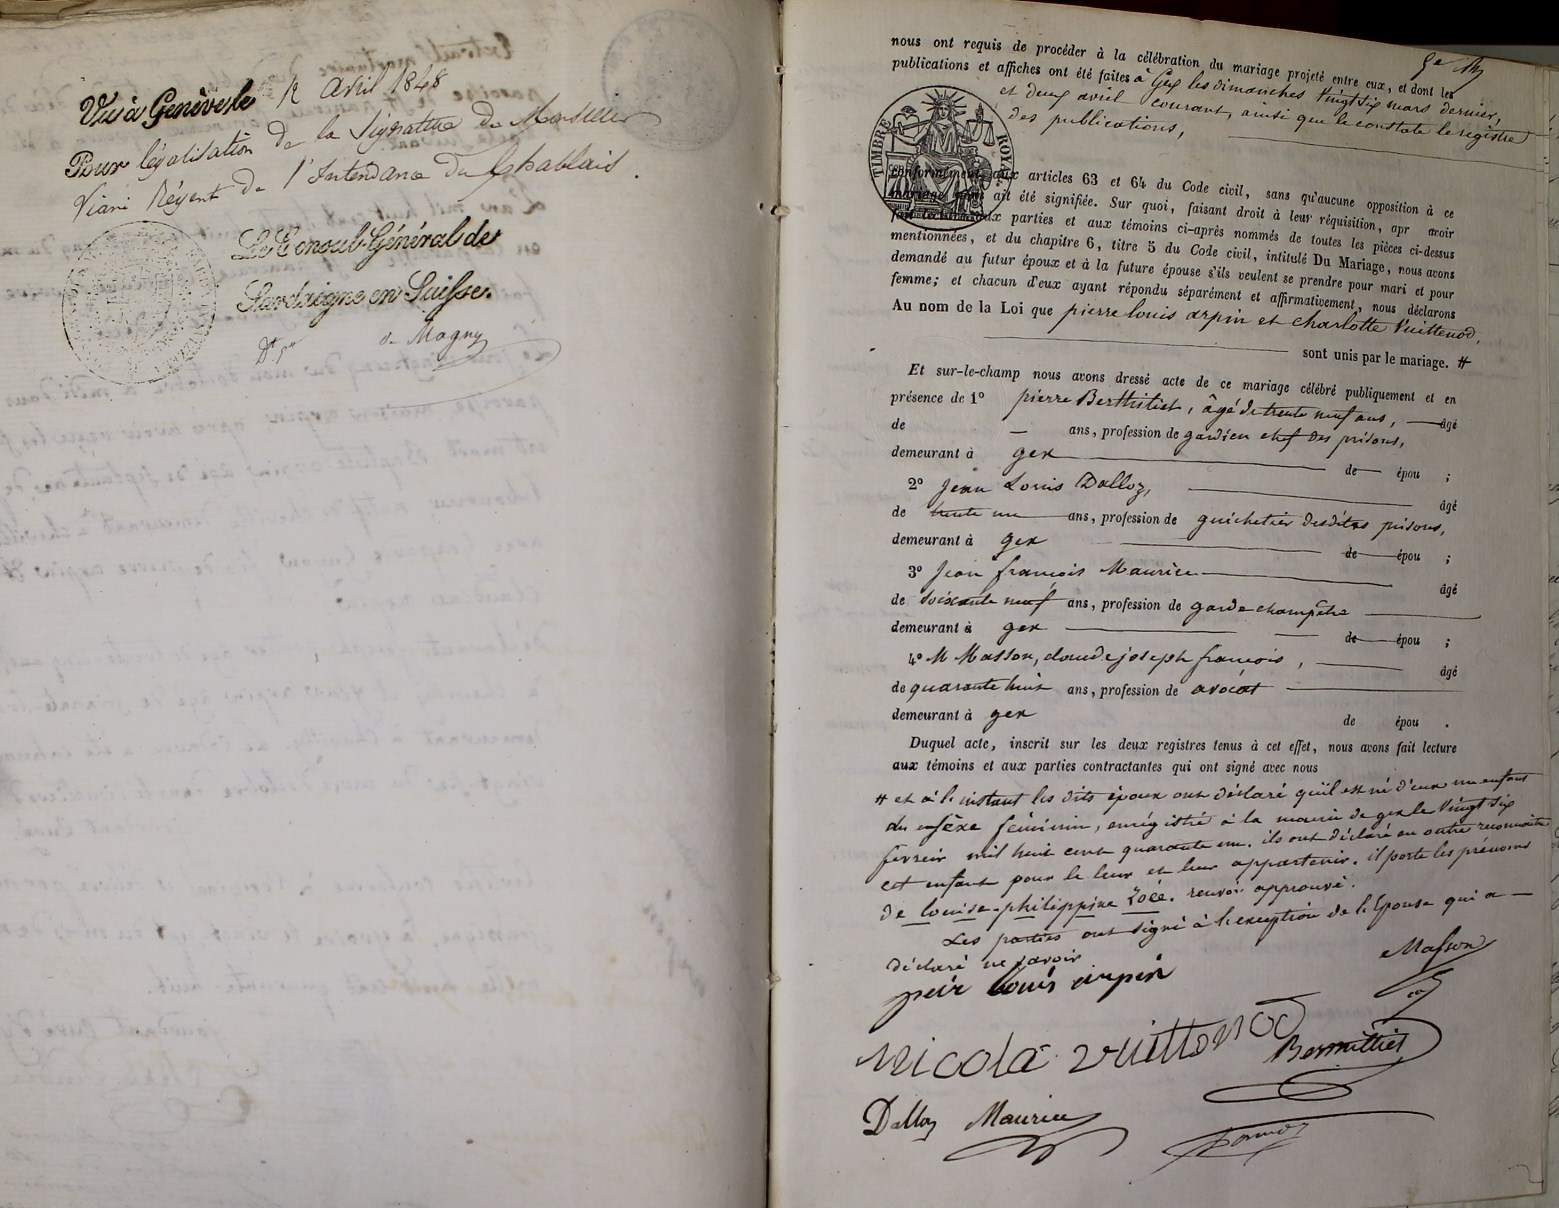 Vu à Genève le 12 Avril 1848
Pour légalisation de la Signature de Monsieur
Viani Régent de l'Intendance du Chablais.
Le Consul Général de
Sardaigne en Suisse.
de Magny
nous ont requis de procéder à la célébration du mariage projeté entre eux, et dont les
publications et affiches ont été faites à Gex les dimanches vingt six mars dernier,
et deux avril courant, ainsi que le constate le registre
des publications,
TIMBRE ROYAL
conformément aux articles 63 et 64 du Code civil, sans qu'aucune opposition à ce
mariage ait été signifiée. Sur quoi, faisant droit à leur réquisition, apr avoir
fait lecture aux parties et aux témoins ci-après nommés de toutes les pièces ci-dessus
mentionnées, et du chapitre 6, titre 5 du Code civil, intitulé Du Mariage, nous avons
demandé au futur époux et à la future épouse s'ils veulent se prendre pour mari et pour
femme; et chacun d'eux ayant répondu séparément et affirmativement, nous déclarons
Au nom de la Loi que pierre louis arpin et charlotte Vuittenod,
sont unis par le mariage. #
Et sur-le-champ nous avons dressé acte de ce mariage célébré publiquement et en
présence de 1° pierre Berthiliet, âgé de trente neuf ans, âgé
de — ans, profession de gardien chef des prisons,
demeurant à gex de épou ;
2° jean Louis Dalloz, âgé
de trente un ans, profession de guichetier desdites prisons,
demeurant à gex de épou ;
3° jean françois Maurice âgé
de soixante neuf ans, profession de garde champêtre
demeurant à gex de épou ;
4° M Masson, claude joseph françois, âgé
de quarante huit ans, profession de avocat
demeurant à gex de épou .
Duquel acte, inscrit sur les deux registres tenus à cet effet, nous avons fait lecture
aux témoins et aux parties contractantes qui ont signé avec nous
# et à l'instant les dits époux ont déclaré qu'il est né d'eux un enfant
du sexe féminin, enrégistré à la mairie de gex le vingt six
fevreir mil huit cent quarante un. ils ont déclaré en outre reconnaitre
cet enfant pour le leur et leur appartenir. il porte les prénoms
de louise-philippine Zoée. renvoi approuvé.
Les parties ont signé à l'exception de l'Epouse qui a
déclaré ne savoir
peir louis arpin
Masson
nicola vuittonod
Dalloz Maurice